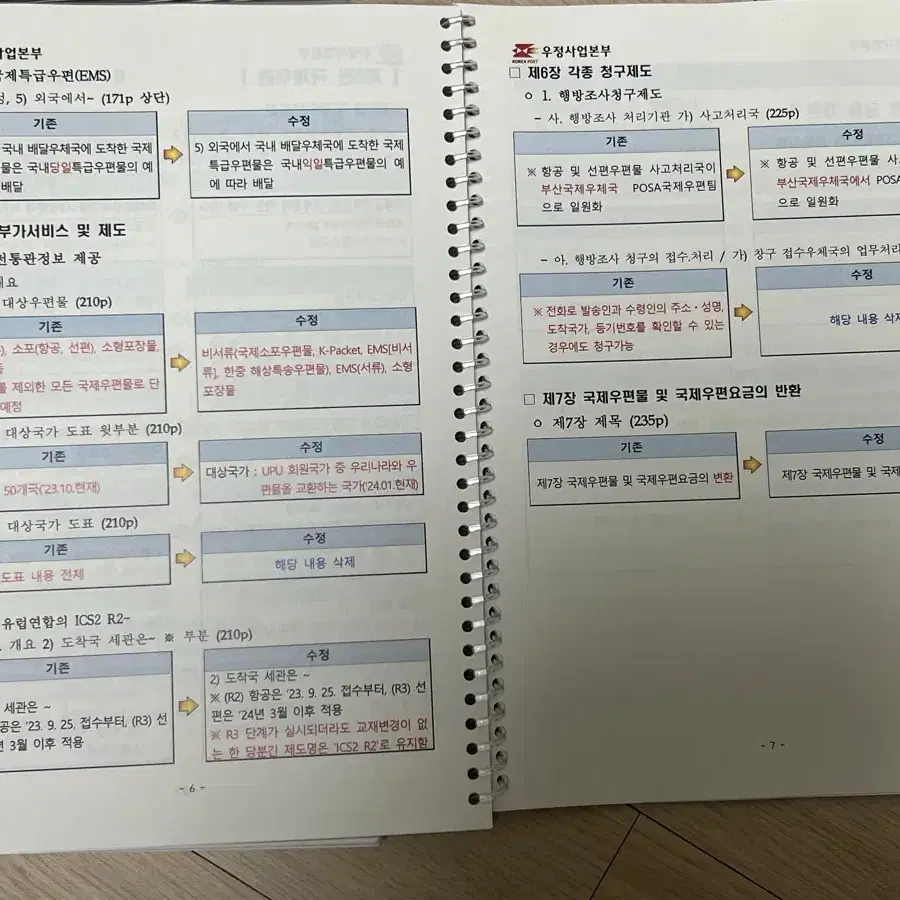 사업본부
국제특급우편(EMS)
, 5) 외국에서~ (171p 상단)
기존
수정
국내 배달우체국에 도착한 국제
물은 국내당일특급우편물의 예
배달
5) 외국에서 국내 배달우체국에 도착한 국제
특급우편물은 국내익일특급우편물의 예
에 따라 배달
부가서비스 및 제도
전통관정보 제공
개요
대상우편물 (210p)
기존
수정
), 소포(항공, 선편), 소형포장물,
등
를 제외한 모든 국제우편물로 단
예정
비서류(국제소포우편물, K-Packet, EMS[비서
류], 한중 해상특송우편물), EMS(서류), 소형
포장물
대상국가 도표 윗부분 (210p)
기존
수정
50개국('23.10.현재)
대상국가 : UPU 회원국가 중 우리나라와 우
편물을 교환하는 국가('24.01.현재)
대상국가 도표 (210p)
기존
수정
도표 내용 전체
해당 내용 삭제
유럽연합의 ICS2 R2~
. 개요 2) 도착국 세관은~ ※ 부분 (210p)
기존
수정
세관은 ~
공은 '23. 9. 25. 접수부터, (R3) 선
년 3월 이후 적용
2) 도착국 세관은 ~
※ (R2) 항공은 '23. 9. 25. 접수부터, (R3) 선
편은 '24년 3월 이후 적용
※ R3 단계가 실시되더라도 교재변경이 없
는 한 당분간 제도명은 'ICS2 R2'로 유지함
- 6 -
KOREA POST 우정사업본부
□ 제6장 각종 청구제도
ㅇ 1. 행방조사청구제도
- 사. 행방조사 처리기관 가) 사고처리국 (225p)
기존
수정
※ 항공 및 선편우편물 사고처리국이
부산국제우체국 POSA국제우편팀
으로 일원화
※ 항공 및 선편우편물 사
부산국제우체국에서 POSA
으로 일원화
- 아. 행방조사 청구의 접수.처리 / 가) 창구 접수우체국의 업무처리
기존
수정
※ 전화로 발송인과 수령인의 주소・성명,
도착국가, 등기번호를 확인할 수 있는
경우에도 청구가능
해당 내용 삭제
□ 제7장 국제우편물 및 국제우편요금의 반환
ㅇ 제7장 제목 (235p)
기존
수정
제7장 국제우편물 및 국제우편요금의 변환
제7장 국제우편물 및 국제
- 7 -